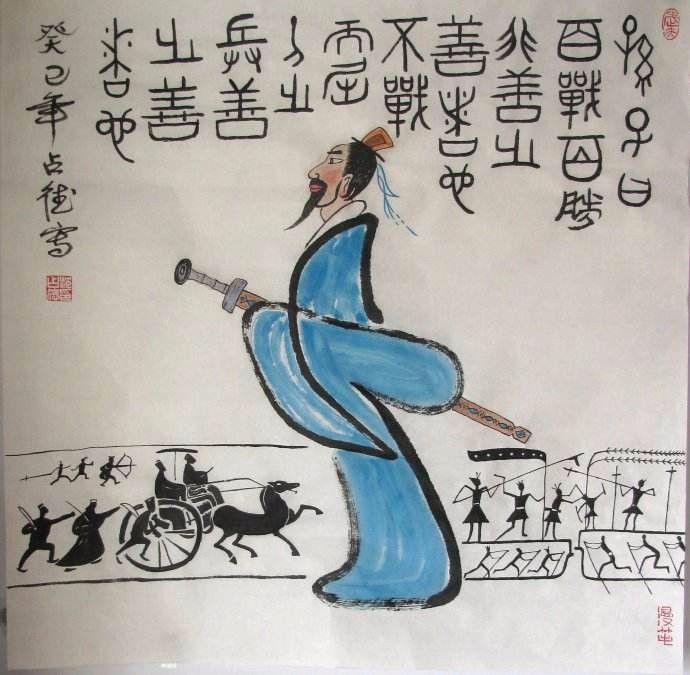 孫子曰
百戰百勝
非善之
善者也
不戰
而屈
人之
兵善
之善
者也
癸巳年占寫